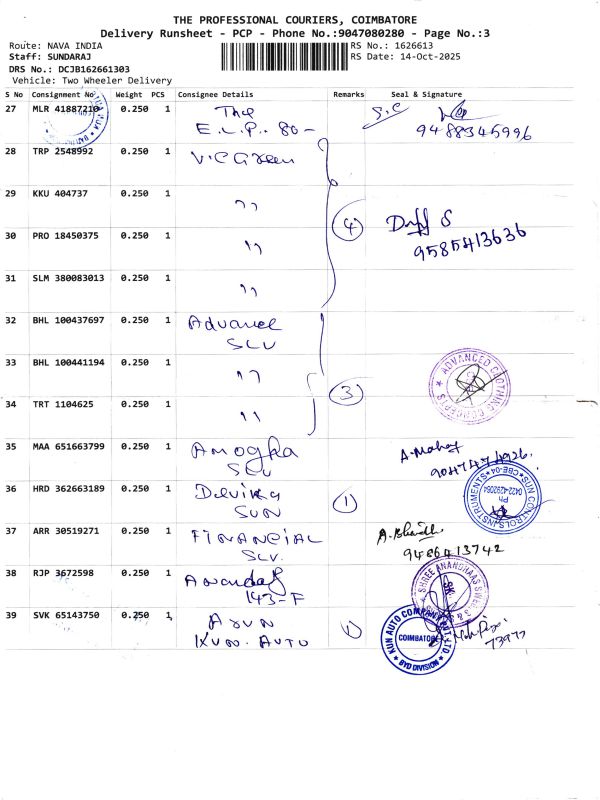 THE PROFESSIONAL COURIERS, COIMBATORE
Delivery Runsheet - PCP - Phone No.:9047080280 - Page No.:3
Route: NAVA INDIA
RS No.: 1626613
Staff: SUNDARAJ
RS Date: 14-Oct-2025
DRS No.: DCJB162661303
Vehicle: Two Wheeler Delivery
S No Consignment No Weight PCS Consignee Details Remarks Seal & Signature
27 MLR 41887210 0.250 1 The S.C
E.L.P. 80- 9488345996
28 TRP 2548992 0.250 1 V.C Green
29 KKU 404737 0.250 1 "
(4) 9585413636
30 PRO 18450375 0.250 1 "
31 SLM 380083013 0.250 1 "
32 BHL 100437697 0.250 1 Advance
SLV
33 BHL 100441194 0.250 1 "
(3) ADVANCED CLOTHING CONCEPTS
34 TRT 1104625 0.250 1 "
35 MAA 651663799 0.250 1 Amogha
36 HRD 362663189 0.250 1 Devika
SUN (1) SUN CONTROLS INSTRUMENTS CBE-04
37 ARR 30519271 0.250 1 FINANCIAL A.
SLV. 9486413742
38 RJP 3672598 0.250 1
143-F SHREE ANANDHAAS
39 SVK 65143750 0.250 1 Arun
KUN. AUTO (1) KUN AUTO COMPANY PVT. LTD.
COIMBATORE
BYD DIVISION
73977